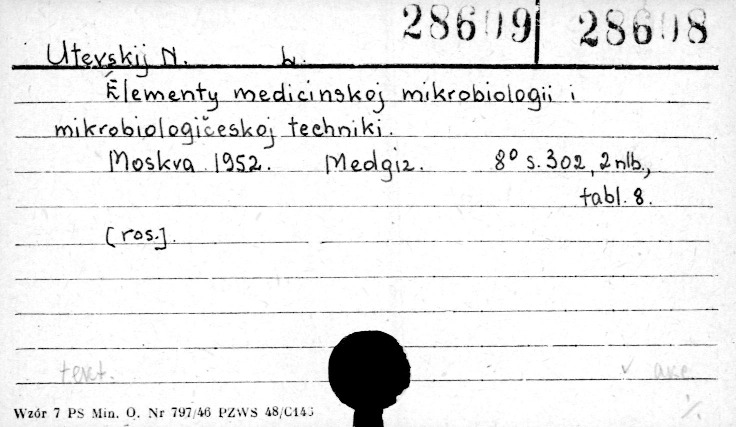 28609 28608
Utevskij N. L.
Élementy medicinskoj mikrobiologii i
mikrobiologičeskoj techniki.
Moskva 1952. Medgiz. 8° s. 302, 2 nlb.,
tabl. 8.
[ros.].
text.
Wzór 7 PS Min. O. Nr 797/46 PZWS 48/C143